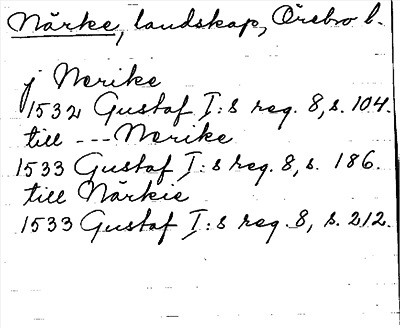 Närke, landskap, Örebro l.
j Nerike
1532 Gustaf I:s reg. 8, s. 104.
till --- Nerike
1533 Gustaf I:s reg. 8, s. 186.
till Närkie
1533 Gustaf I:s reg. 8, s. 212.